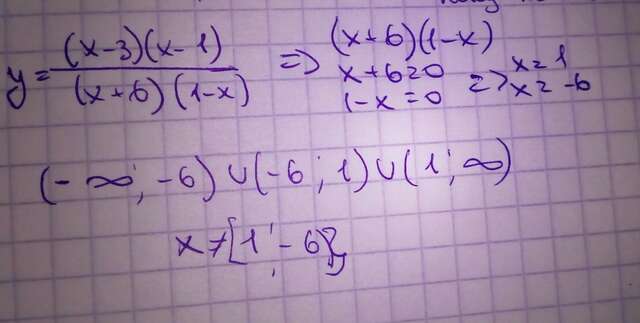 y = (x-3)(x-1) / (x+6)(1-x) => (x+6)(1-x)
x+6=0
1-x=0 => x=1
x=-6
(-∞; -6) ∪ (-6; 1) ∪ (1; ∞)
x≠{1; -6}